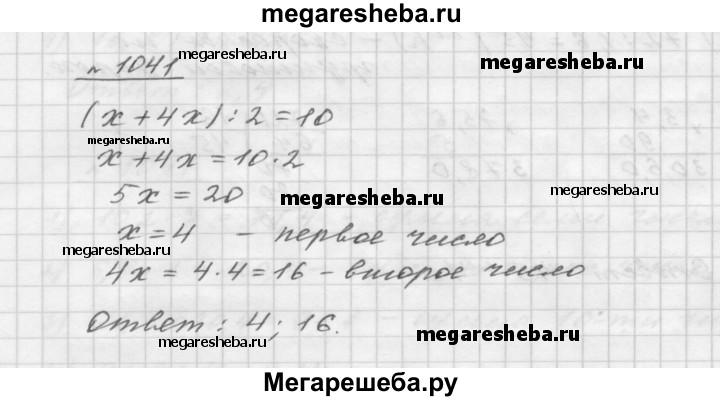 megaresheba.ru
№ 1041 megaresheba.ru
megaresheba.ru
(x + 4x) : 2 = 10
megaresheba.ru
x + 4x = 10 · 2
5x = 20
megaresheba.ru
megaresheba.ru
x = 4 - первое число
megaresheba.ru
4x = 4 · 4 = 16 - второе число
Ответ: 4; 16.
megaresheba.ru
megaresheba.ru
Мегарешеба.ру